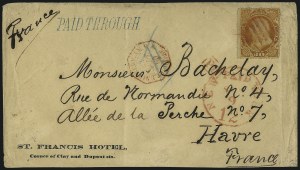 France
PAID THROUGH
Monsieur Bachelay,
Rue de Normandie Nº 4,
Allée de la Perche Nº 7,
Havre
France
ST. FRANCIS HOTEL,
Corner of Clay and Dupont sts.